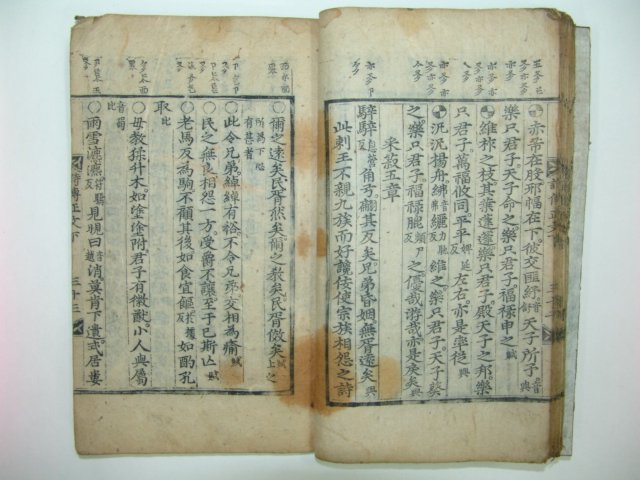 ○赤芾在股邪幅在下。彼交匪紓音舒天子所予音與
樂只君子天子命之樂只君子福祿申之賦
○維柞之枝其葉蓬蓬樂只君子殿天子之邦樂
只君子萬福攸同平平婢延反左右亦是率從興
○汎汎楊舟紼音弗纚力馳反維之樂只君子天子葵
之樂只君子福祿膍反之優哉游哉亦是戾矣興
采菽五章
騂騂息營反角弓翩其反矣兄弟昏姻無胥遠矣興
此刺王不親九族而好讒佞使宗族相怨之詩
○爾之遠矣民胥然矣爾之敎矣民胥傚矣賦上之
所爲下必有甚者
○此令兄弟綽綽有裕不令兄弟交相為瘉賦
○民之無良相怨一方受爵不讓至于已斯亡賦
○老馬反為駒不顧其後如食宜饇反如酌孔
取比
○毋敎猱升木如塗塗附君子有徽猷小人與屬
音蜀比
○雨雪瀌瀌反見晛曰音越消莫肯下遺式居婁
詩傳正文下 三十三